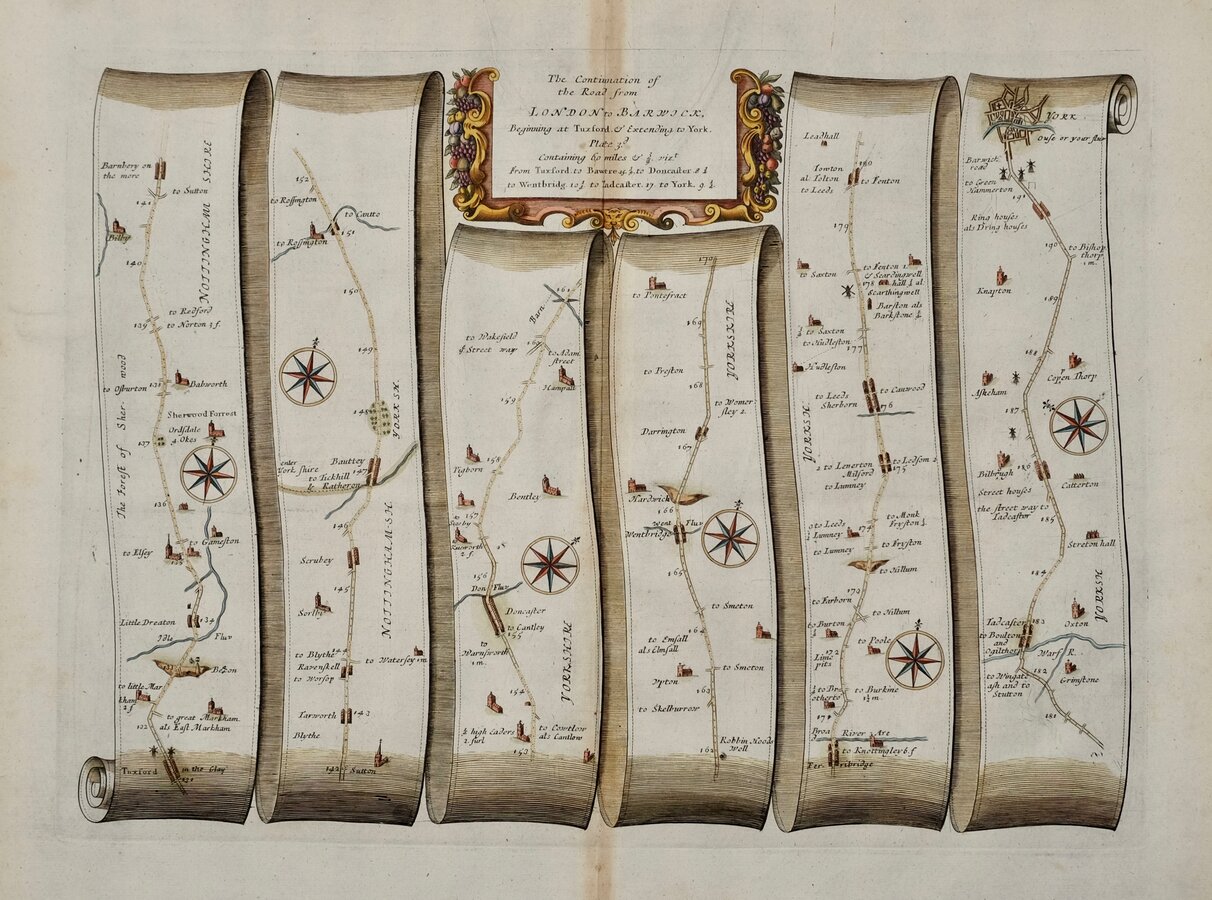 The Continuation of
the Road from
LONDON to BARWICK,
Beginning at Tuxford & Extending to York.
Plate 3d
Containing 60 miles &
From Tuxford to Bawtre to Doncaster 8
to Wentbridg. 10 to Tadcaster. 17. to York. 9
Barnbery on
the more
to Sutton
NOTTINGHAM SHIRE
141
Bilby
140
to Redford
139
to Norton 3 f.
to Osburton
Babworth
The Forest of Sherwood
Sherwood Forrest
Ordsdale
4 Okes
137
136
to Gameston
to Elsey
135
Little Dreaton
134
Idle Fluv
to little Mar
kham
2 f
to great Markham.
als East Markham
132
Tuxford in the Clay
131
152
to Rossington
to Cantto
to Rossington
151
150
149
148
YORK SH.
enter
York shire
Bauttey
147
to Tickhill
& Katheron
146
Scrubey
NOTTINGHAMSH
145
Sorlby
to Blythe
144
Ravenskell
to Watersey 1 m.
to Worsop
Tarworth
143
Blythe
142
Sutton
161
Barn
to Wakefield
& Street way
160
to Adam
street
Hampall
159
Tigborn
158
Bentley
157
2 f.
156
Don Fluv
Doncaster
to Cantley
155
to
Warnsworth
1 m.
YORKSHIRE
154
high Caders
2 furl
to Cowtlow
als Cantlow
153
170
to Pontefract
169
YORKSHIRE
to Preston
168
to Womer
sley 2.
Darrington
167
Hardwick
166
Went Fluv
Wentbridge
165
to Smeton
164
to Emsall
als Elmsall
Upton
to Smeton
163
to Skelburrow
Robbin Hoods
Well
162
Leadhall
180
Towton
al. Tolton
to Leeds
to Fenton
179
to Saxton
to Fenton 1.
& Scardingwell
178
hall al.
Scarthingwell
Barston als
Barkstone
to Saxton
to Hudleston
177
Hudleston
to Cawood
to Leeds
Sherborn
176
YORKSH.
2 to Lenerton
Milford
to Ledsom
175
to Lumney
to Monk
Fryston
to Leeds
Lumney
174
to Lumney
to Fryston
to Hillum
173
to Farborn
to Hillum
to Burton
to Poole
172
Lime
pitz
to Bro
otherto
to Burkine
1 m
171
Broa River Are
to Knottingley 6. f
Fer ribridge
YORK
Ouse or your fluv
Barwick
road
to Green
Hammerton
191
Ring houses
als Dring houses
190
to Bishop
thorp
1 m.
Knapton
189
188
Copen Thorp
Askeham
187
Bilbrugh
186
Catterton
Street houses
the street way to
Tadcaster
185
Streton hall
184
YORKSH
Oxton
Tadcaster
183
to Boulton
and
Ogilthorp
Warf R.
182
Grimstone
to Wingate
ash and to
Stutton
181